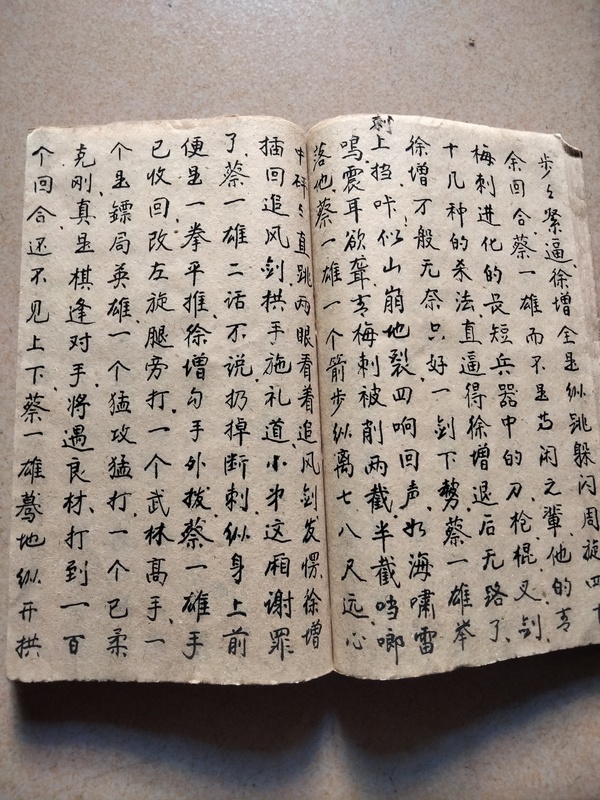 步々紧逼,徐增全是纵跳躲闪周旋四十
余回合,蔡一雄而不是为闲之辈,他的青
梅刺进化的长短兵器中的刀枪棍叉剑,
十几种的杀法,直逼得徐增退后无路了,
徐增万般无奈只好一剑下势,蔡一雄举
刺上挡,咔,似山崩地裂四响回声,如海啸雷
鸣,震耳欲聋,青梅刺被削两截,半截噹啷
落地,蔡一雄一个箭步纵离七八尺远,心
中砰々直跳,两眼看着追风剑发愣,徐增
插回追风剑,拱手施礼道,小弟这厢谢罪
了,蔡一雄二话不说扔掉断刺,纵身上前
便是一拳平推,徐增勾手外拨,蔡一雄手
已收回改左旋腿旁打,一个武林高手,一
个是镖局英雄,一个猛攻猛打,一个已柔
克刚,真是棋逢对手,将遇良材,打到一百
个回合还不见上下,蔡一雄蓦地纵开拱